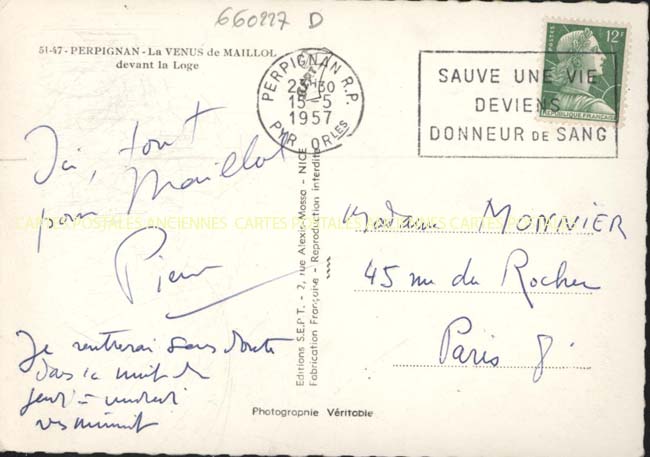 660227 D
51-47 - PERPIGNAN - La VENUS de MAILLOL
devant la Loge
PERPIGNAN R.P.
23H30
15-5
1957
PYR. ORLES
SAUVE UNE VIE
DEVIENS
DONNEUR DE SANG
POSTES
12F
REPUBLIQUE FRANÇAISE
Ici, tout
pour Maillol
Pierre
Je rentrerai sans doute
dans la nuit de
jeudi à vendredi
vers minuit
Editions S.E.P.T. - 2, rue Alexis-Mossa - NICE
Fabrication Française - Reproduction interdite
Madame MONNIER
45 rue du Rocher
Paris 8
Photographie Véritable
CARTES POSTALES ANCIENNES CARTES POSTALES ANCIENNES CARTES POSTALES ANCIENNES